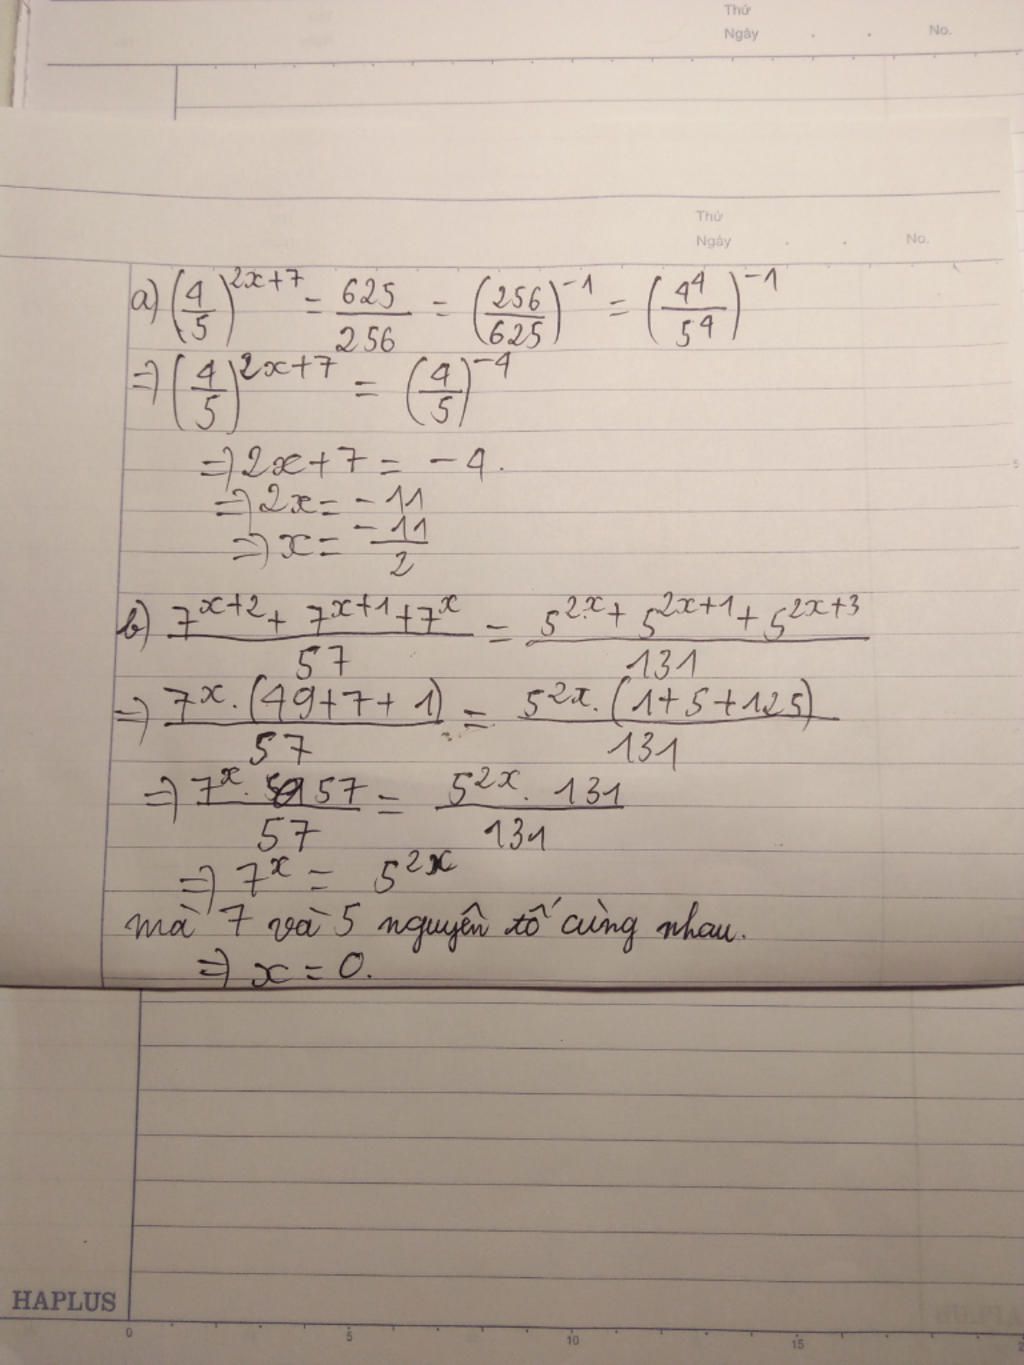 Thứ
Ngày . . No.
Thứ
Ngày . . No.
a) (4/5)^2x+7 = 625/256 = (256/625)^-1 = (4^4/5^4)^-1
=> (4/5)^2x+7 = (4/5)^-4
=> 2x+7 = -4.
=> 2x = -11
=> x = -11/2
b) (7^x+2 + 7^x+1 + 7^x)/57 = (5^2x + 5^2x+1 + 5^2x+3)/131
=> 7^x.(49+7+1)/57 = 5^2x.(1+5+125)/131
=> 7^x. 57/57 = 5^2x. 131/131
=> 7^x = 5^2x
mà 7 và 5 nguyên tố cùng nhau.
=> x = 0.
HAPLUS
0 5 10 15